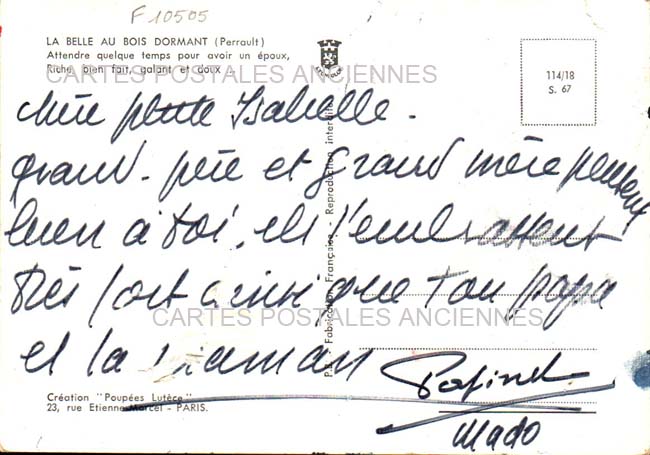 F10505
LA BELLE AU BOIS DORMANT (Perrault)
Attendre quelque temps pour avoir un époux,
Riche, bien fait, galant et doux ...
114/18
S. 67
CARTES POSTALES ANCIENNES
Chère petite Isabelle.
grand-père et Grand mère pensent
bien à toi, ils t'embrassent
très fort ainsi que Ton papa
et ta maman
CARTES POSTALES ANCIENNES
Fabrication Française. - Reproduction interdite
Mado
Création "Poupées Lutèce"
23, rue Etienne-Marcel - PARIS.